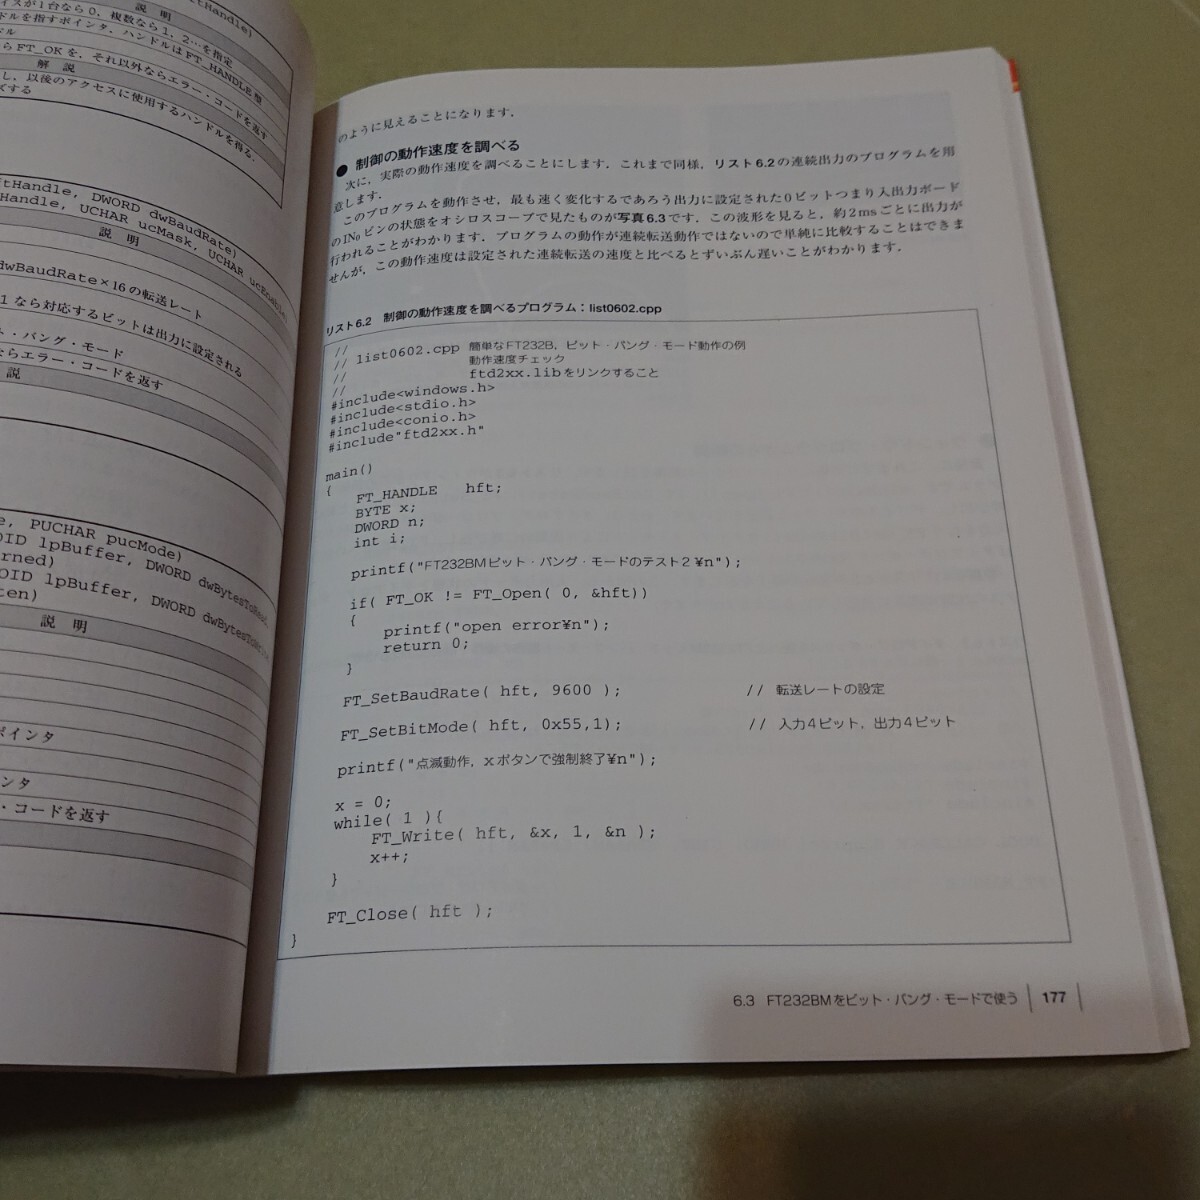 ftHandle)
説 明
イスが1台なら0，複数なら1，2…を指定
ドルを指すポインタ．ハンドルはFT_HANDLE型
ドル
らFT_OKを，それ以外ならエラー・コードを返す
解 説
し，以後のアクセスに使用するハンドルを得る．
ズする
ftHandle, DWORD dwBaudRate)
Handle, UCHAR ucMask, UCHAR ucEnable
説 明
dwBaudRate×16の転送レート
1なら対応するビットは出力に設定される
ト・バング・モード
ならエラー・コードを返す
説
e, PUCHAR pucMode)
OID lpBuffer, DWORD dwBytesToRead,
rned)
OID lpBuffer, DWORD dwBytesToWrite
ten)
説 明
ポインタ
ンタ
・コードを返す
のように見えることになります．
● 制御の動作速度を調べる
次に，実際の動作速度を調べることにします．これまで同様，リスト6.2の連続出力のプログラムを用
意します．
このプログラムを動作させ，最も速く変化するであろう出力に設定された0ビットつまり入出力ボード
のIN₀ピンの状態をオシロスコープで見たものが写真6.3です．この波形を見ると，約2msごとに出力が
行われることがわかります．プログラムの動作が連続転送動作ではないので単純に比較することはできま
せんが，この動作速度は設定された連続転送の速度と比べるとずいぶん遅いことがわかります．
リスト6.2 制御の動作速度を調べるプログラム：list0602.cpp
//
// list0602.cpp 簡単なFT232B，ビット・バング・モード動作の例
// 動作速度チェック
// ftd2xx.libをリンクすること
//
#include<windows.h>
#include<stdio.h>
#include<conio.h>
#include"ftd2xx.h"
main()
{
FT_HANDLE hft;
BYTE x;
DWORD n;
int i;
printf("FT232BMビット・バング・モードのテスト2¥n");
if( FT_OK != FT_Open( 0, &hft))
{
printf("open error¥n");
return 0;
}
FT_SetBaudRate( hft, 9600 ); // 転送レートの設定
FT_SetBitMode( hft, 0x55,1); // 入力4ビット，出力4ビット
printf("点滅動作，xボタンで強制終了¥n");
x = 0;
while( 1 ){
FT_Write( hft, &x, 1, &n );
x++;
}
FT_Close( hft );
}
6.3 FT232BMをビット・バング・モードで使う 177